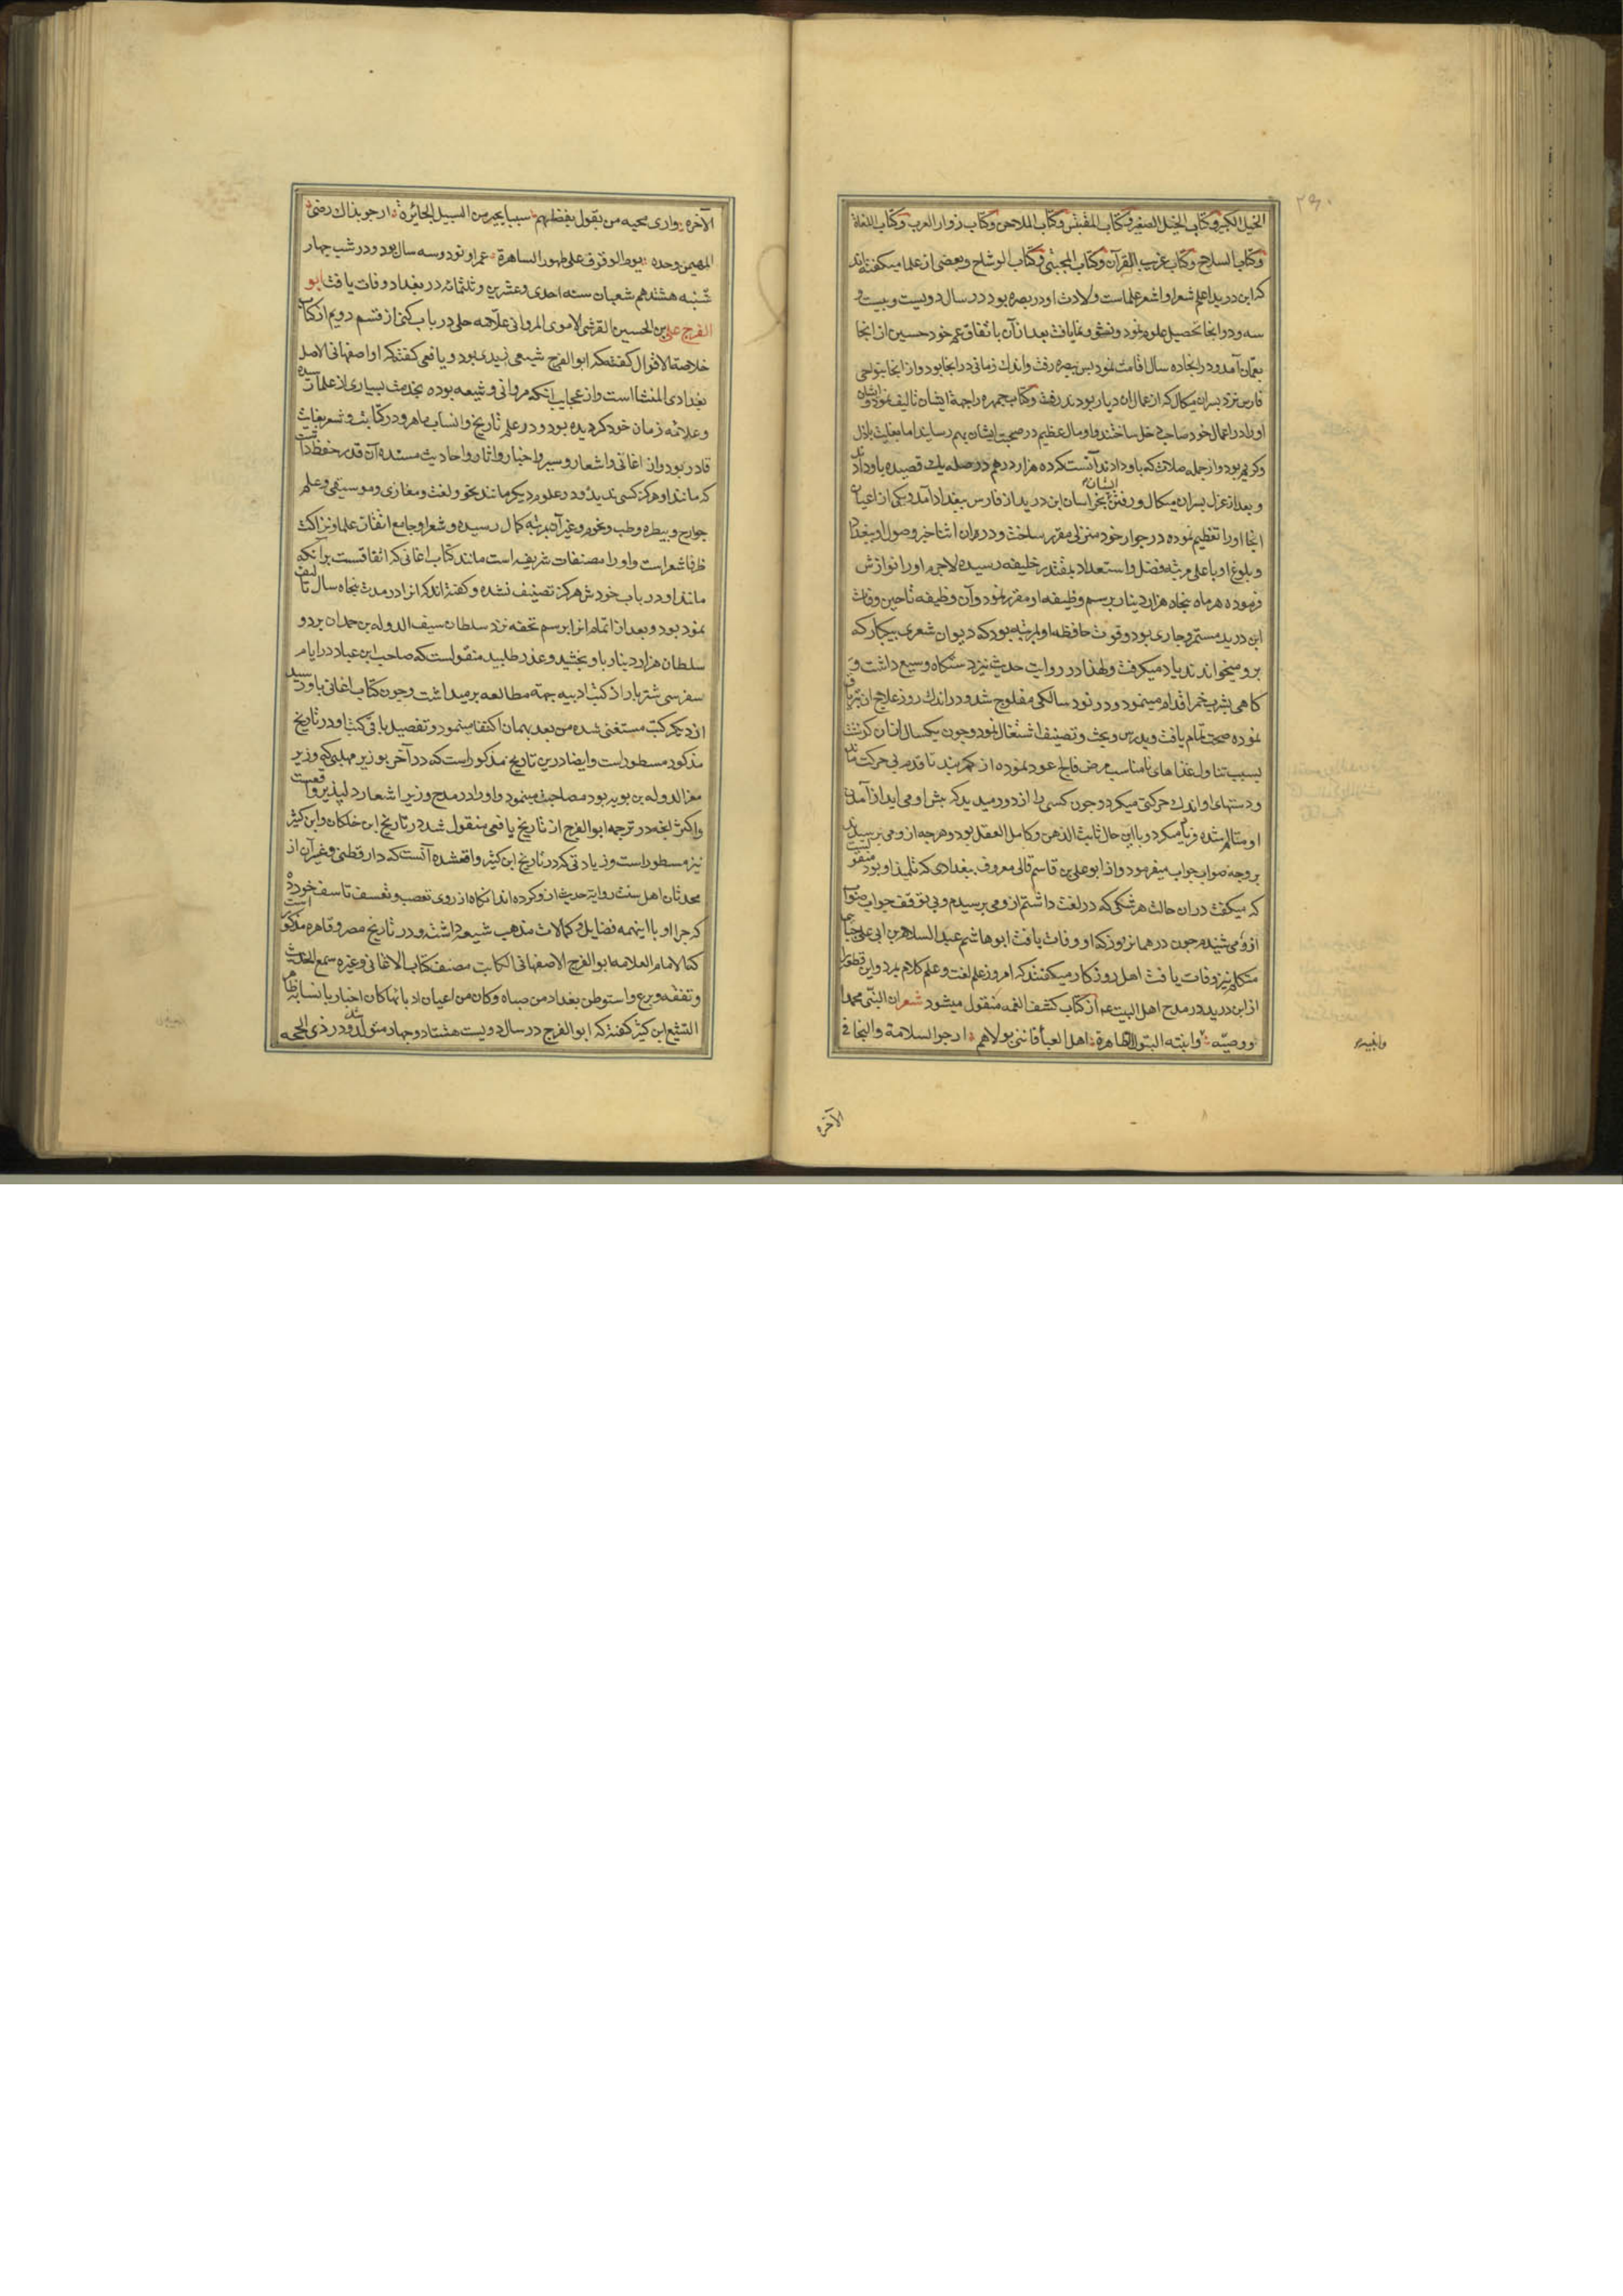 ۲۹۰
الخیل الکبیر و کتاب الخیل الصغیر و کتاب المقتبس و کتاب الملاحن و کتاب زوار العرب و کتاب اللغاة
و کتاب السلاح و کتاب غریب القرآن و کتاب المجتبی و کتاب الوشاح و بعضی از علما میکفته‌اند
که ابن درید اعلم شعرا و اشعر علما است ولادت او در بصره بود در سال دویست و بیست و
سه و در انجا تحصیل علوم نمود و نشو و نما یافت بعد از آن باتفاق عم خود حسین از انجا
بعمان آمد و در انجا ده سال اقامت نمود پس ببصره رفت و اندک زمانی در انجا بود و از انجا بنواحی
فارس نزد پسران میکال که از عمال ان دیار بودند رفت و کتاب جمهره را جهة ایشان تالیف نمود و ایشان
او را در اعمال خود صاحب دخل ساختند و او مال عظیم در صحبت ایشان بهم رسانید اما بغایت باذل
و کریم بود و از جمله صلات که باو دادند آنست که ده هزار درهم در صله یک قصیده باو دادند
و بعد از عزل پسران میکال و رفتن ایشان بخراسان ابن درید از فارس ببغداد آمد و یکی از اعیان
انجا او را تعظیم نموده در جوار خود منزلی مقرر ساخت و در همان اثنا خبر وصول او ببغداد
و بلوغ او باعلی مرتبه فضل و استعداد بمقتدر خلیفه رسیده لاجرم او را نوازش
فرموده هر ماه پنجاه هزار دینار برسم وظیفه او مقرر نمود و آن وظیفه تا حین وفات
ابن درید مستمر و جاری بود و قوت حافظه او بمرتبه بود که دیوان شعری بیکبار که
برو میخواندند یاد میکرفت و لهذا در روایت حدیث نیز دستکاه وسیع داشت و
کاهی بشرب خمر اقدام مینمود و در نود سالکی مفلوج شد و در اندک روز علاج ان بتریاق
نموده صحت تمام یافت و بدرس و بحث و تصنیف اشتغال نمود و چون یکسال از ان کذشت
بسبب تناول غذاهای نامناسب مرض فالج عود نموده از کمربند تا قدم بی حرکت ماند
و دستهای او اندک حرکتی میکرد و چون کسی را از دور میدید که پیش او می اید از آمدن
او متالم شده فریاد میکرد و با این حال ثابت الذهن و کامل العقل بود و هر چه از و می پرسیدند
بر وجه صواب جواب میفرمود و از ابو علی بن قاسم قالی معروف ببغدادی که تلمیذ او بود منقولست
که میکفت دران حالت هر شکی که در لغت داشتم از و می پرسیدم و بی توقف جواب صواب
ازو می شنیدم چون در همانروز که او وفات یافت ابو هاشم عبد السلام بن ابی علی جبائی
متکلم نیز وفات یافت اهل روزکار میکفتند که امروز علم لغت و علم کلام بمرد و این قطعه
از ابن درید در مدح اهل البیت عم از کتاب کشف الغمه منقول میشود شعر ان النبی محمدا
و وصیه وابنته البتول الطاهرة اهل العبا فاننی بولاهم ارجو السلامة والنجا فی
الآخره
الآخره واری محبه من یقول بفضلهم سببا یجیر من السبیل الجائرة ارجو بذاک رضی
المهیمن وحده یوم الوقوف علی ظهور الساهرة عمر او نود و سه سال بود و در شب چهار
شنبه هشتدهم شعبان سنه احدی و عشرین و ثلثمائه در بغداد وفات یافت ابو
الفرج علی بن الحسین القرشی الاموی المروانی علامه حلی در باب کنی از قسم دویم از کتاب
خلاصة الاقوال کفته که ابو الفرج شیعی زیدی بود و یافعی کفته که او اصفهانی الاصل
بغدادی المنشا است و از عجایب انکه مروانی و شیعه بوده بخدمت بسیاری از علما رسیده
و علامه زمان خود کردیده بود و در علم تاریخ و انساب ماهر و در کتابت و شعر بغایت
قادر بود و از اغانی و اشعار و سیر و اخبار و اثار و احادیث مسنده آن قدر حفظ داشت
که مانند او هرکز کسی ندیده و در علوم دیکر مانند نحو و لغت و مغازی و موسیقی و علم
جوارح و بیطره و طب و نجوم و غیر آن بمرتبه کمال رسیده و شعر او جامع اتقان علما و نزاکت
ظرفا شعراست و او را مصنفات شریفه است مانند کتاب اغانی که اتفاقست بر آنکه
مانند او در باب خودش هرکز تصنیف نشده و کفته‌اند که انرا در مدت پنجاه سال تالیف
نموده بود و بعد از اتمام انرا برسم تحفه نزد سلطان سیف الدوله بن حمدان برد و
سلطان هزار دینار باو بخشید و عذر طلبید منقولست که صاحب ابن عباد در ایام
سفر سی شتر بار از کتب ادبیه جهة مطالعه برمیداشت و چون کتاب اغانی باو رسید
از دیکر کتب مستغنی شده من بعد بهمان اکتفا مینمود و تفصیل باقی کتب او در تاریخ
مذکور مسطور است و ایضا درین تاریخ مذکور است که در آخر بوزیر مهلبی که وزیر
معز الدوله بن بویه بود مصاحبت مینمود و او را در مدح وزیر اشعار دلپذیر واقعست
و اکثر انچه در ترجمه ابو الفرج از تاریخ یافعی منقول شد در تاریخ ابن خلکان و ابن کثیر
نیز مسطور است و زیادتی که در تاریخ ابن کثیر واقعشده آنست که دار قطنی و غیر آن از
محدثان اهل سنت روایة حدیث ازو کرده اند انکاه از روی تعصب و تعسف تاسف خورده
که چرا او با اینهمه فضایل و کمالات مذهب شیعه داشته و در تاریخ مصر و قاهره مذکور است
کتا لامام العلامه ابو الفرج الاصفهانی الکاتب مصنف کتاب الاغانی و غیره سمع الحدیث
و تفقه و برع و استوطن بغداد من صباه و کان من اعیان ادبائها کان اخباریا نسابة ظاهر
التشیع ابن کثیر کفته که ابو الفرج در سال دویست هشتاد و چهار متولد شد و در ذی الحجه